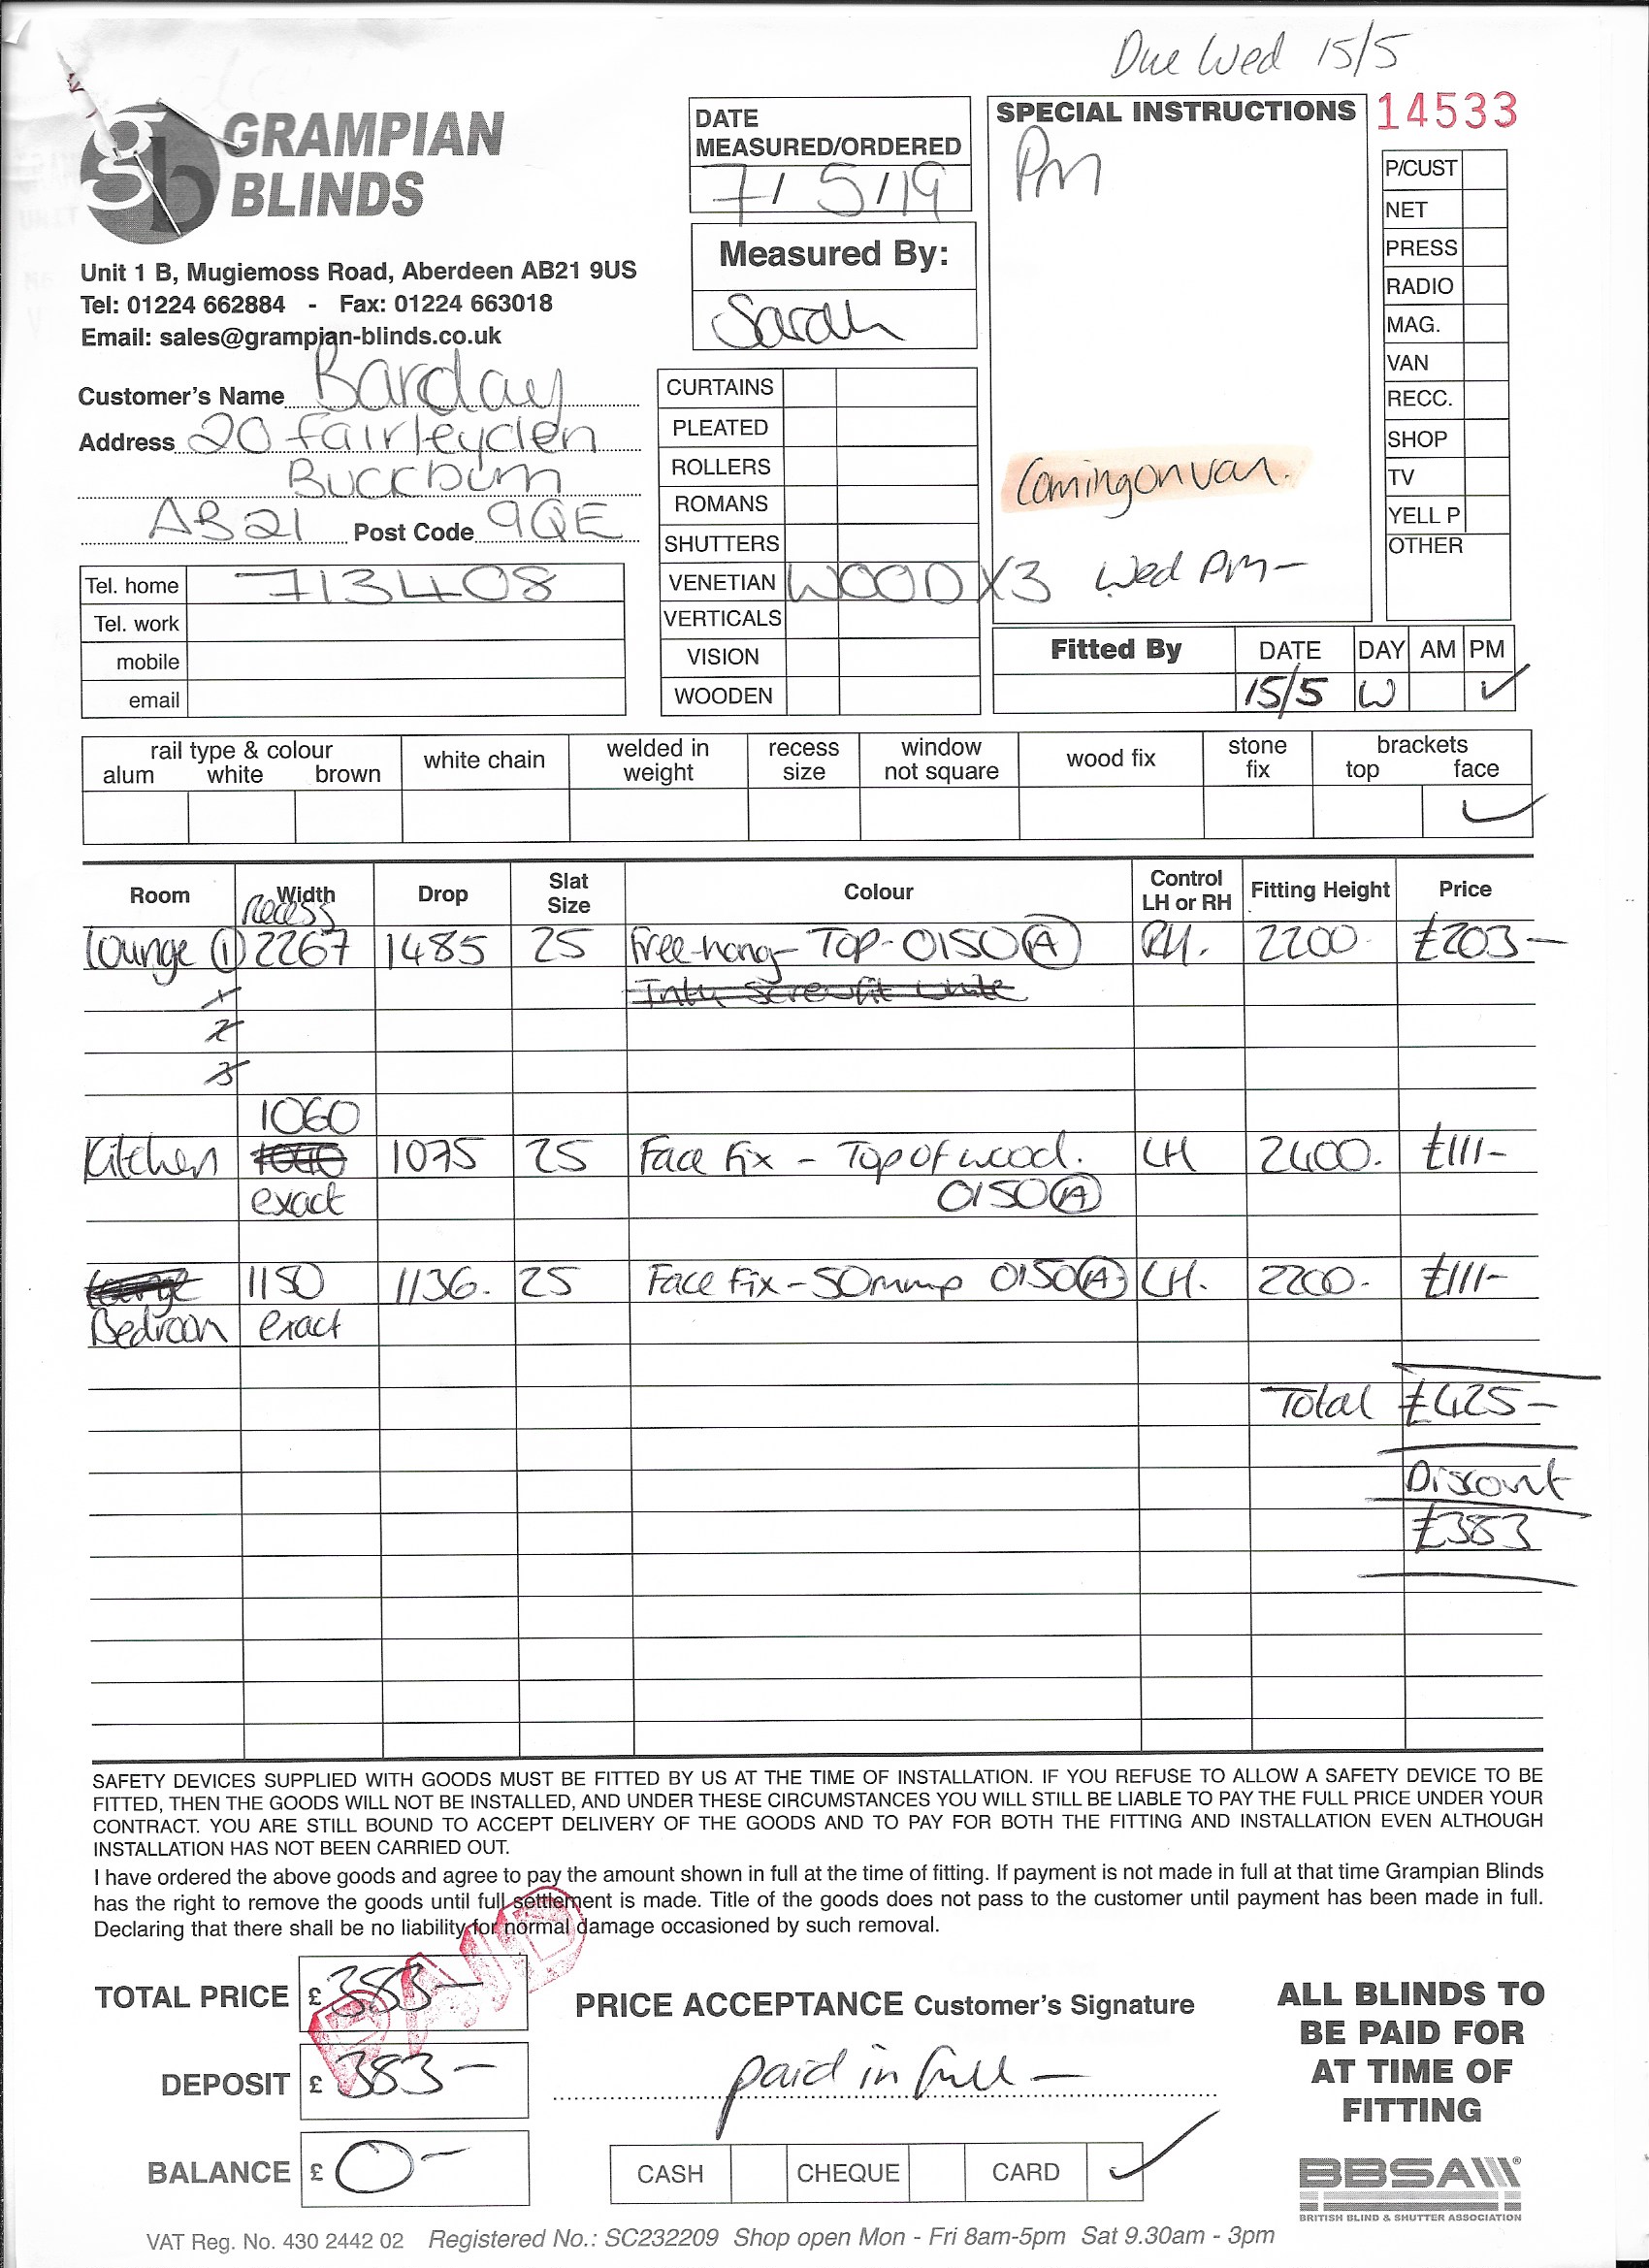 Due Wed 15/5
GRAMPIAN
BLINDS
Unit 1 B, Mugiemoss Road, Aberdeen AB21 9US
Tel: 01224 662884 - Fax: 01224 663018
Email: sales@grampian-blinds.co.uk
Customer's Name Barclay
Address 20 Fairleyden
Buckburn
AB21 Post Code 9QE
Tel. home 713408
Tel. work
mobile
email
DATE
MEASURED/ORDERED
7/5/19
Measured By:
Sarah
CURTAINS
PLEATED
ROLLERS
ROMANS
SHUTTERS
VENETIAN WOOD X3
VERTICALS
VISION
WOODEN
SPECIAL INSTRUCTIONS
Pm
Coming on van.
Wed Pm-
14533
P/CUST
NET
PRESS
RADIO
MAG.
VAN
RECC.
SHOP
TV
YELL P
OTHER
Fitted By DATE DAY AM PM
15/5 W ✓
rail type & colour
alum white brown
white chain
welded in weight
recess size
window not square
wood fix
stone fix
brackets
top face
✓
Room Width Drop Slat Size Colour Control LH or RH Fitting Height Price
recess
Lounge (1) 2267 1485 25 Free-hang- TOP- 0150 (A) RH. 2200 £203-
1
2
3
1060
Kitchen 1075 25 Face fix - Top of wood. LH 2400. £111-
exact 0150 (A)
1150 1136. 25 Face Fix - 50mmp 0150 (A) LH. 2200- £111-
Bedroom exact
Total £425-
Discount
£383
SAFETY DEVICES SUPPLIED WITH GOODS MUST BE FITTED BY US AT THE TIME OF INSTALLATION. IF YOU REFUSE TO ALLOW A SAFETY DEVICE TO BE
FITTED, THEN THE GOODS WILL NOT BE INSTALLED, AND UNDER THESE CIRCUMSTANCES YOU WILL STILL BE LIABLE TO PAY THE FULL PRICE UNDER YOUR
CONTRACT. YOU ARE STILL BOUND TO ACCEPT DELIVERY OF THE GOODS AND TO PAY FOR BOTH THE FITTING AND INSTALLATION EVEN ALTHOUGH
INSTALLATION HAS NOT BEEN CARRIED OUT.
I have ordered the above goods and agree to pay the amount shown in full at the time of fitting. If payment is not made in full at that time Grampian Blinds
has the right to remove the goods until full settlement is made. Title of the goods does not pass to the customer until payment has been made in full.
Declaring that there shall be no liability for normal damage occasioned by such removal.
PAID
TOTAL PRICE £ 383-
DEPOSIT £ 383-
BALANCE £ 0-
PRICE ACCEPTANCE Customer's Signature
paid in full -
CASH CHEQUE CARD ✓
ALL BLINDS TO
BE PAID FOR
AT TIME OF
FITTING
BBSA
BRITISH BLIND & SHUTTER ASSOCIATION
VAT Reg. No. 430 2442 02 Registered No.: SC232209 Shop open Mon - Fri 8am-5pm Sat 9.30am - 3pm